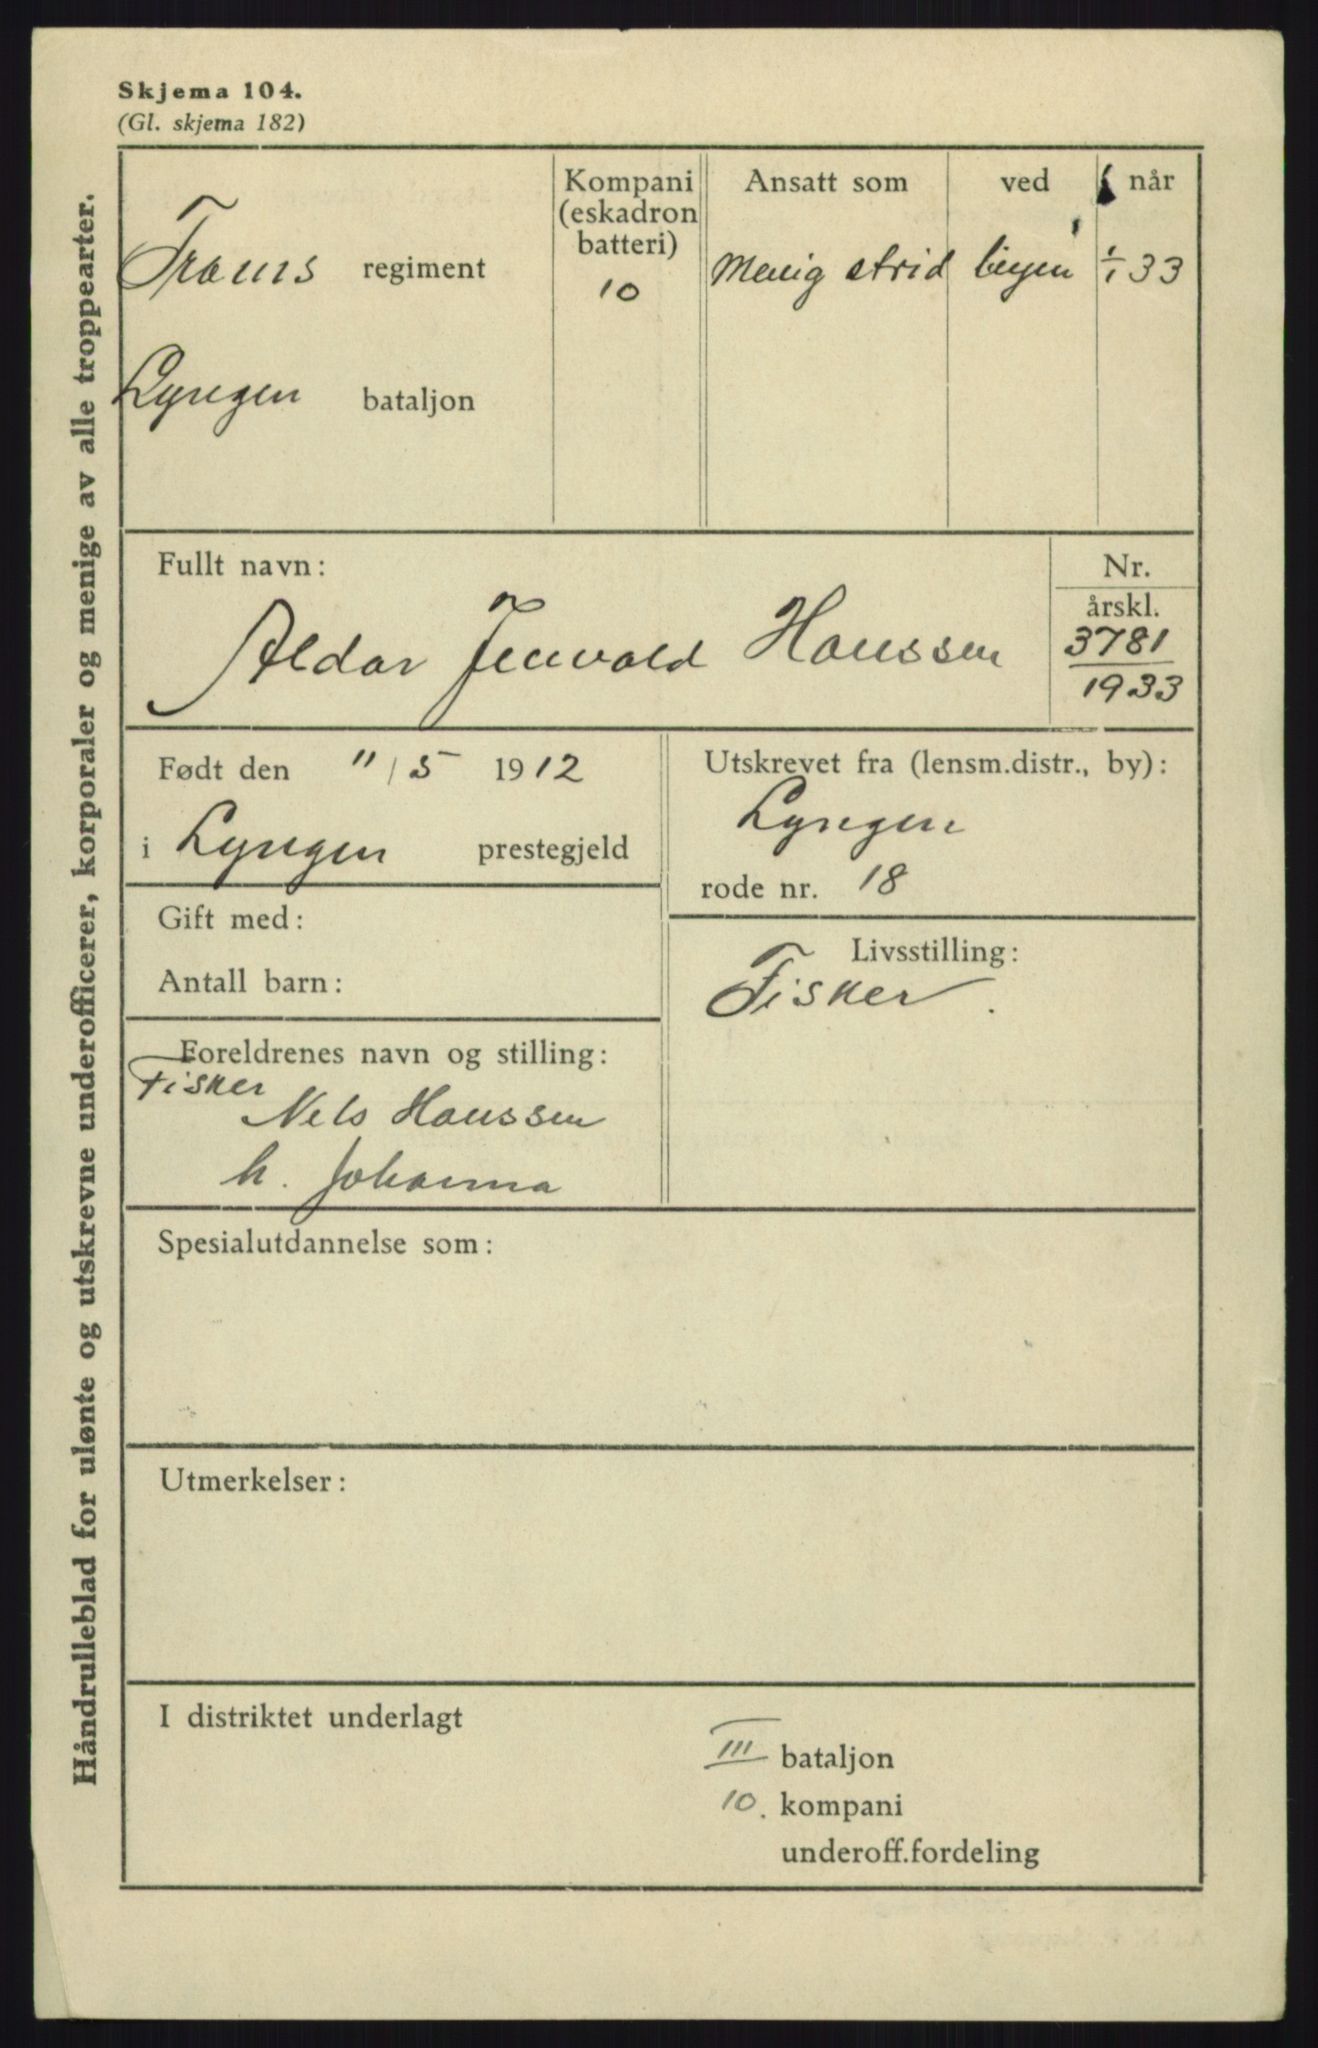 Skjema 104.
(Gl. skjema 182)
Håndrulleblad for ulønte og utskrevne underofficerer, korporaler og menige av alle troppearter.
Troms regiment
Lyngen bataljon
Kompani
(eskadron
batteri)
10
Ansatt som
Menig strid
ved
når
1/1 33
Fullt navn:
Aldor Jenvald Hanssen
Nr.
årskl.
3781
1933
Født den 11/5 1912
i Lyngen prestegjeld
Utskrevet fra (lensm.distr., by):
Lyngen
rode nr. 18
Gift med:
Antall barn:
Livsstilling:
Fisker.
Foreldrenes navn og stilling:
Fisker
Nels Hanssen
h. Johanna
Spesialutdannelse som:
Utmerkelser:
I distriktet underlagt
III bataljon
10. kompani
underoff.fordeling